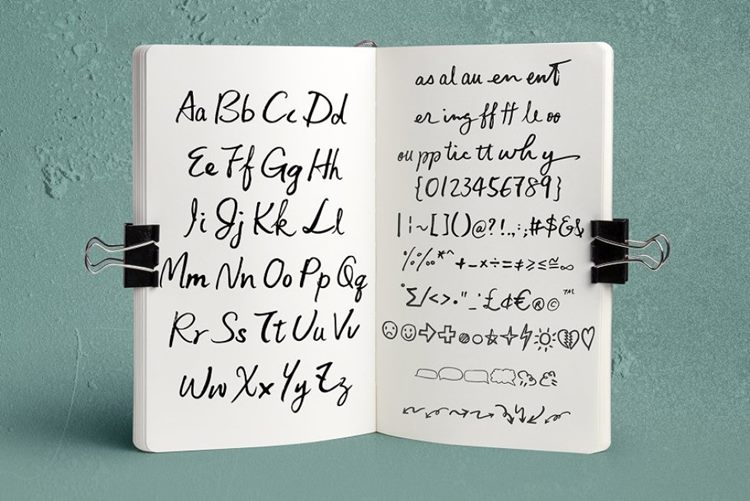 Aa Bb Cc Dd
Ee Ff Gg Hh
Ii Jj Kk Ll
Mm Nn Oo Pp Qq
Rr Ss Tt Uu Vv
Ww Xx Yy Zz
as al au en ent
er ing ff tt le oo
ou pp tic tt wh y
{0123456789}
|¦~[]()@?!.,:;#$&
%‰*^+-×÷=≠≥≤≅∞
°∑/<>•"_:£¢€®©™